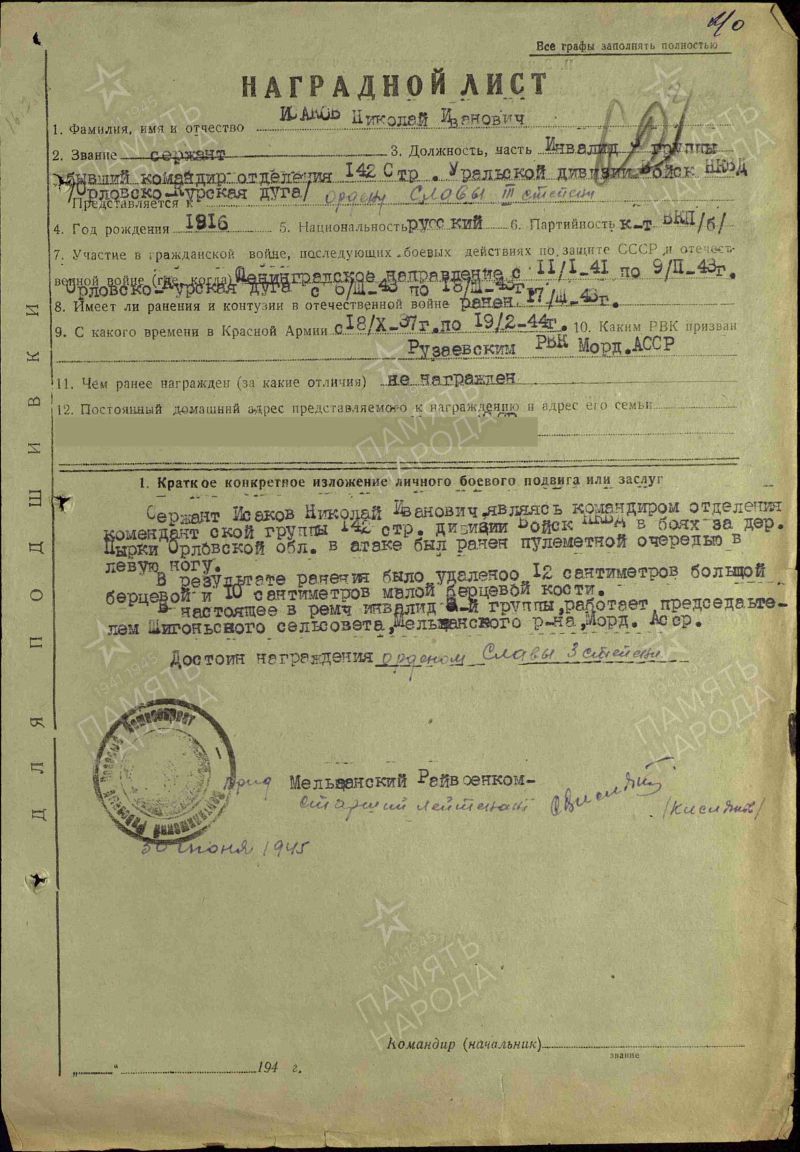 Все графы заполнять полностью
НАГРАДНОЙ ЛИСТ
1. Фамилия, имя и отчество Исаков Николай Иванович
2. Звание сержант 3. Должность, часть Инвалид группы
бывший командир отделения 142 Стр. Уральской дивизии Войск НКВД
/Орловско-Курская дуга/
Представляется к ордену Славы III степени
4. Год рождения 1916 5. Национальность русский 6. Партийность к-т ВКП/б/
7. Участие в гражданской войне, последующих боевых действиях по защите СССР и отечест-
венной войне (где, когда) Ленинградское направление с 11/I-41 по 9/II-43г.
Орловско-Курская дуга с 6/III-43 по 18/III-43г.
8. Имеет ли ранения и контузии в отечественной войне ранен 17/III-43г.
9. С какого времени в Красной Армии с 18/X-37г. по 19/2-44г. 10. Каким РВК призван
Рузаевским РВК Морд.АССР
11. Чем ранее награжден (за какие отличия) не награжден
12. Постоянный домашний адрес представляемого к награждению и адрес его семьи
1. Краткое конкретное изложение личного боевого подвига или заслуг
Сержант Исаков Николай Иванович,являясь командиром отделения
комендант ской группы 142 стр. дивизии Войск НКВД в боях за дер.
Пырки Орловской обл. в атаке был ранен пулеметной очередью в
левую ногу.
В результате ранения было удаленоо 12 сантиметров большой
берцевой и 10 сантиметров малой берцевой кости.
В настоящее в ремч инвалид й группы,работает председате-
лем Шигоньского сельсовета,Мельцанского р-на,Морд. Асср.
Достоин награждения орденом Славы 3 степени
Мельцанский Райвоенком-
старший лейтенант
30 июня 1945
Командир (начальник)
звание
„ “ 194 г.
ДЛЯ ПОДШИВКИ
1941 1945
ПАМЯТЬ НАРОДА